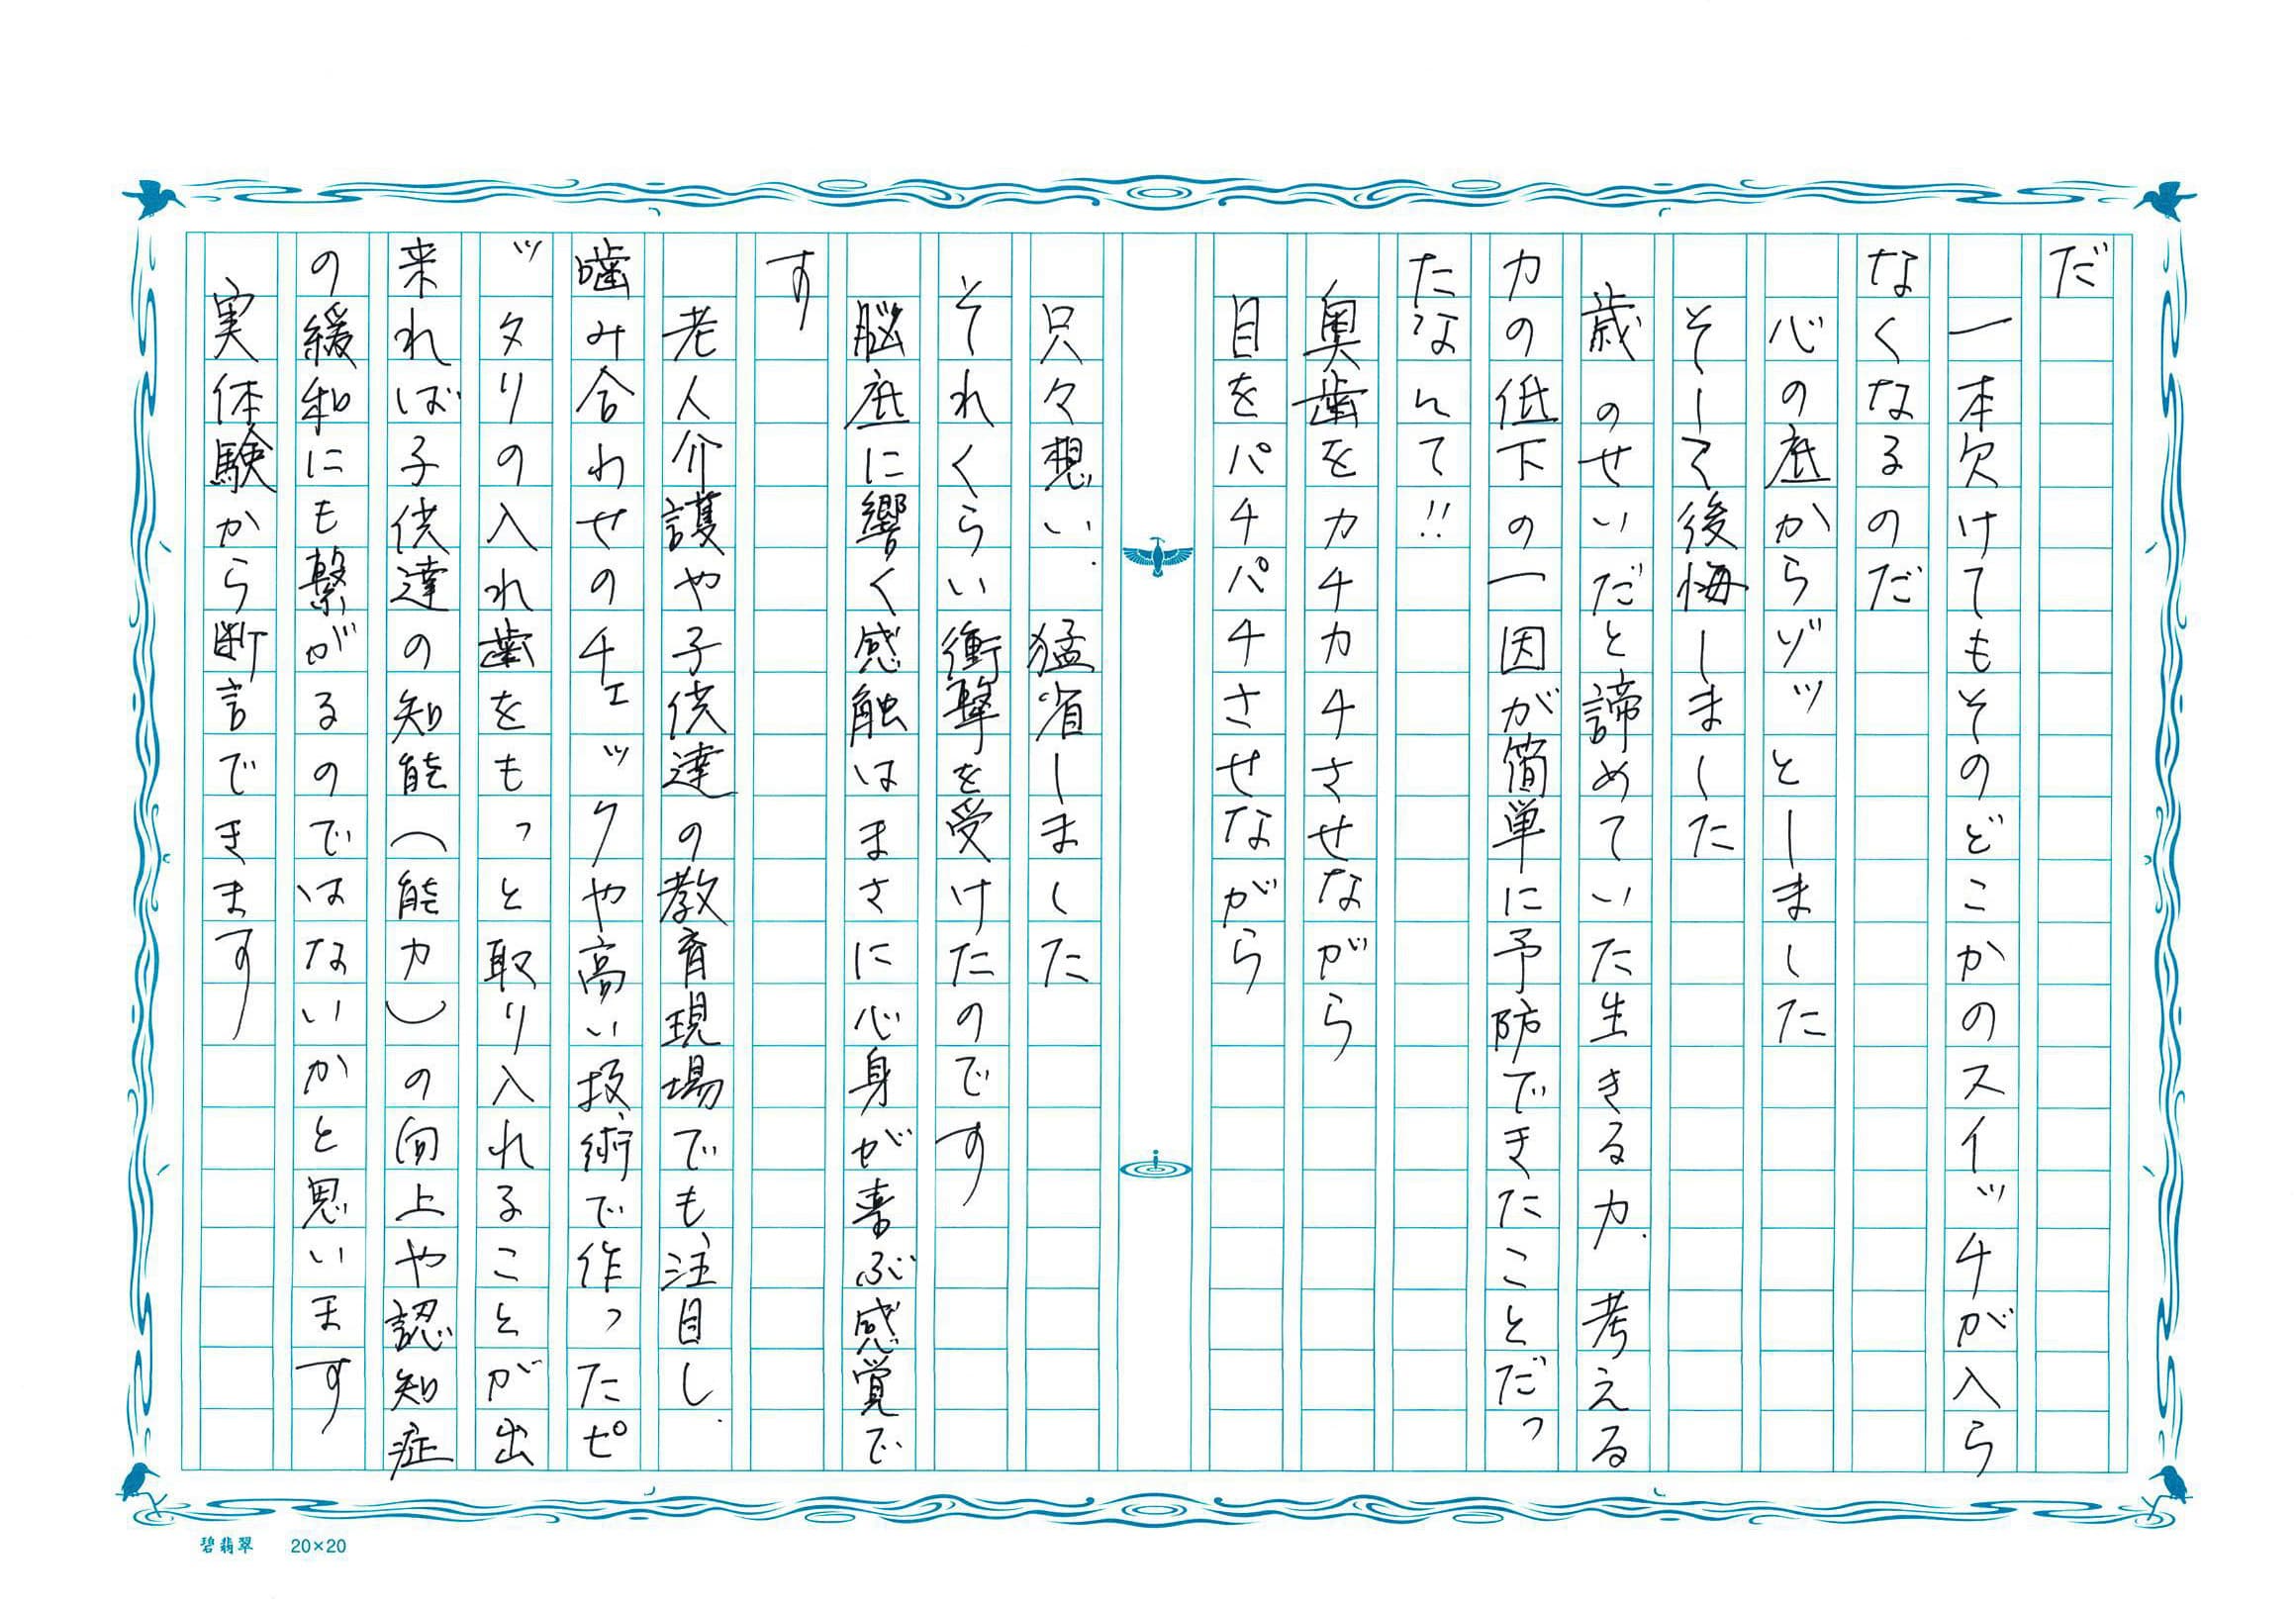 だ
一本欠けてもそのどこかのスイッチが入ら
なくなるのだ
心の底からゾッとしました
そして後悔しました
歳のせいだと諦めていた生きる力、考える
力の低下の一因が簡単に予防できたことだっ
たなんて!!
奥歯をカチカチさせながら
目をパチパチさせながら
只々想い、猛省しました
それくらい衝撃を受けたのです
脳底に響く感触はまさに心身が喜ぶ感覚で
す
老人介護や子供達の教育現場でも、注目し、
噛み合わせのチェックや高い技術で作ったピ
ッタリの入れ歯をもっと取り入れることが出
来れば子供達の知能(能力)の向上や認知症
の緩和にも繋がるのではないかと思います
実体験から断言できます
碧翡翠 20×20